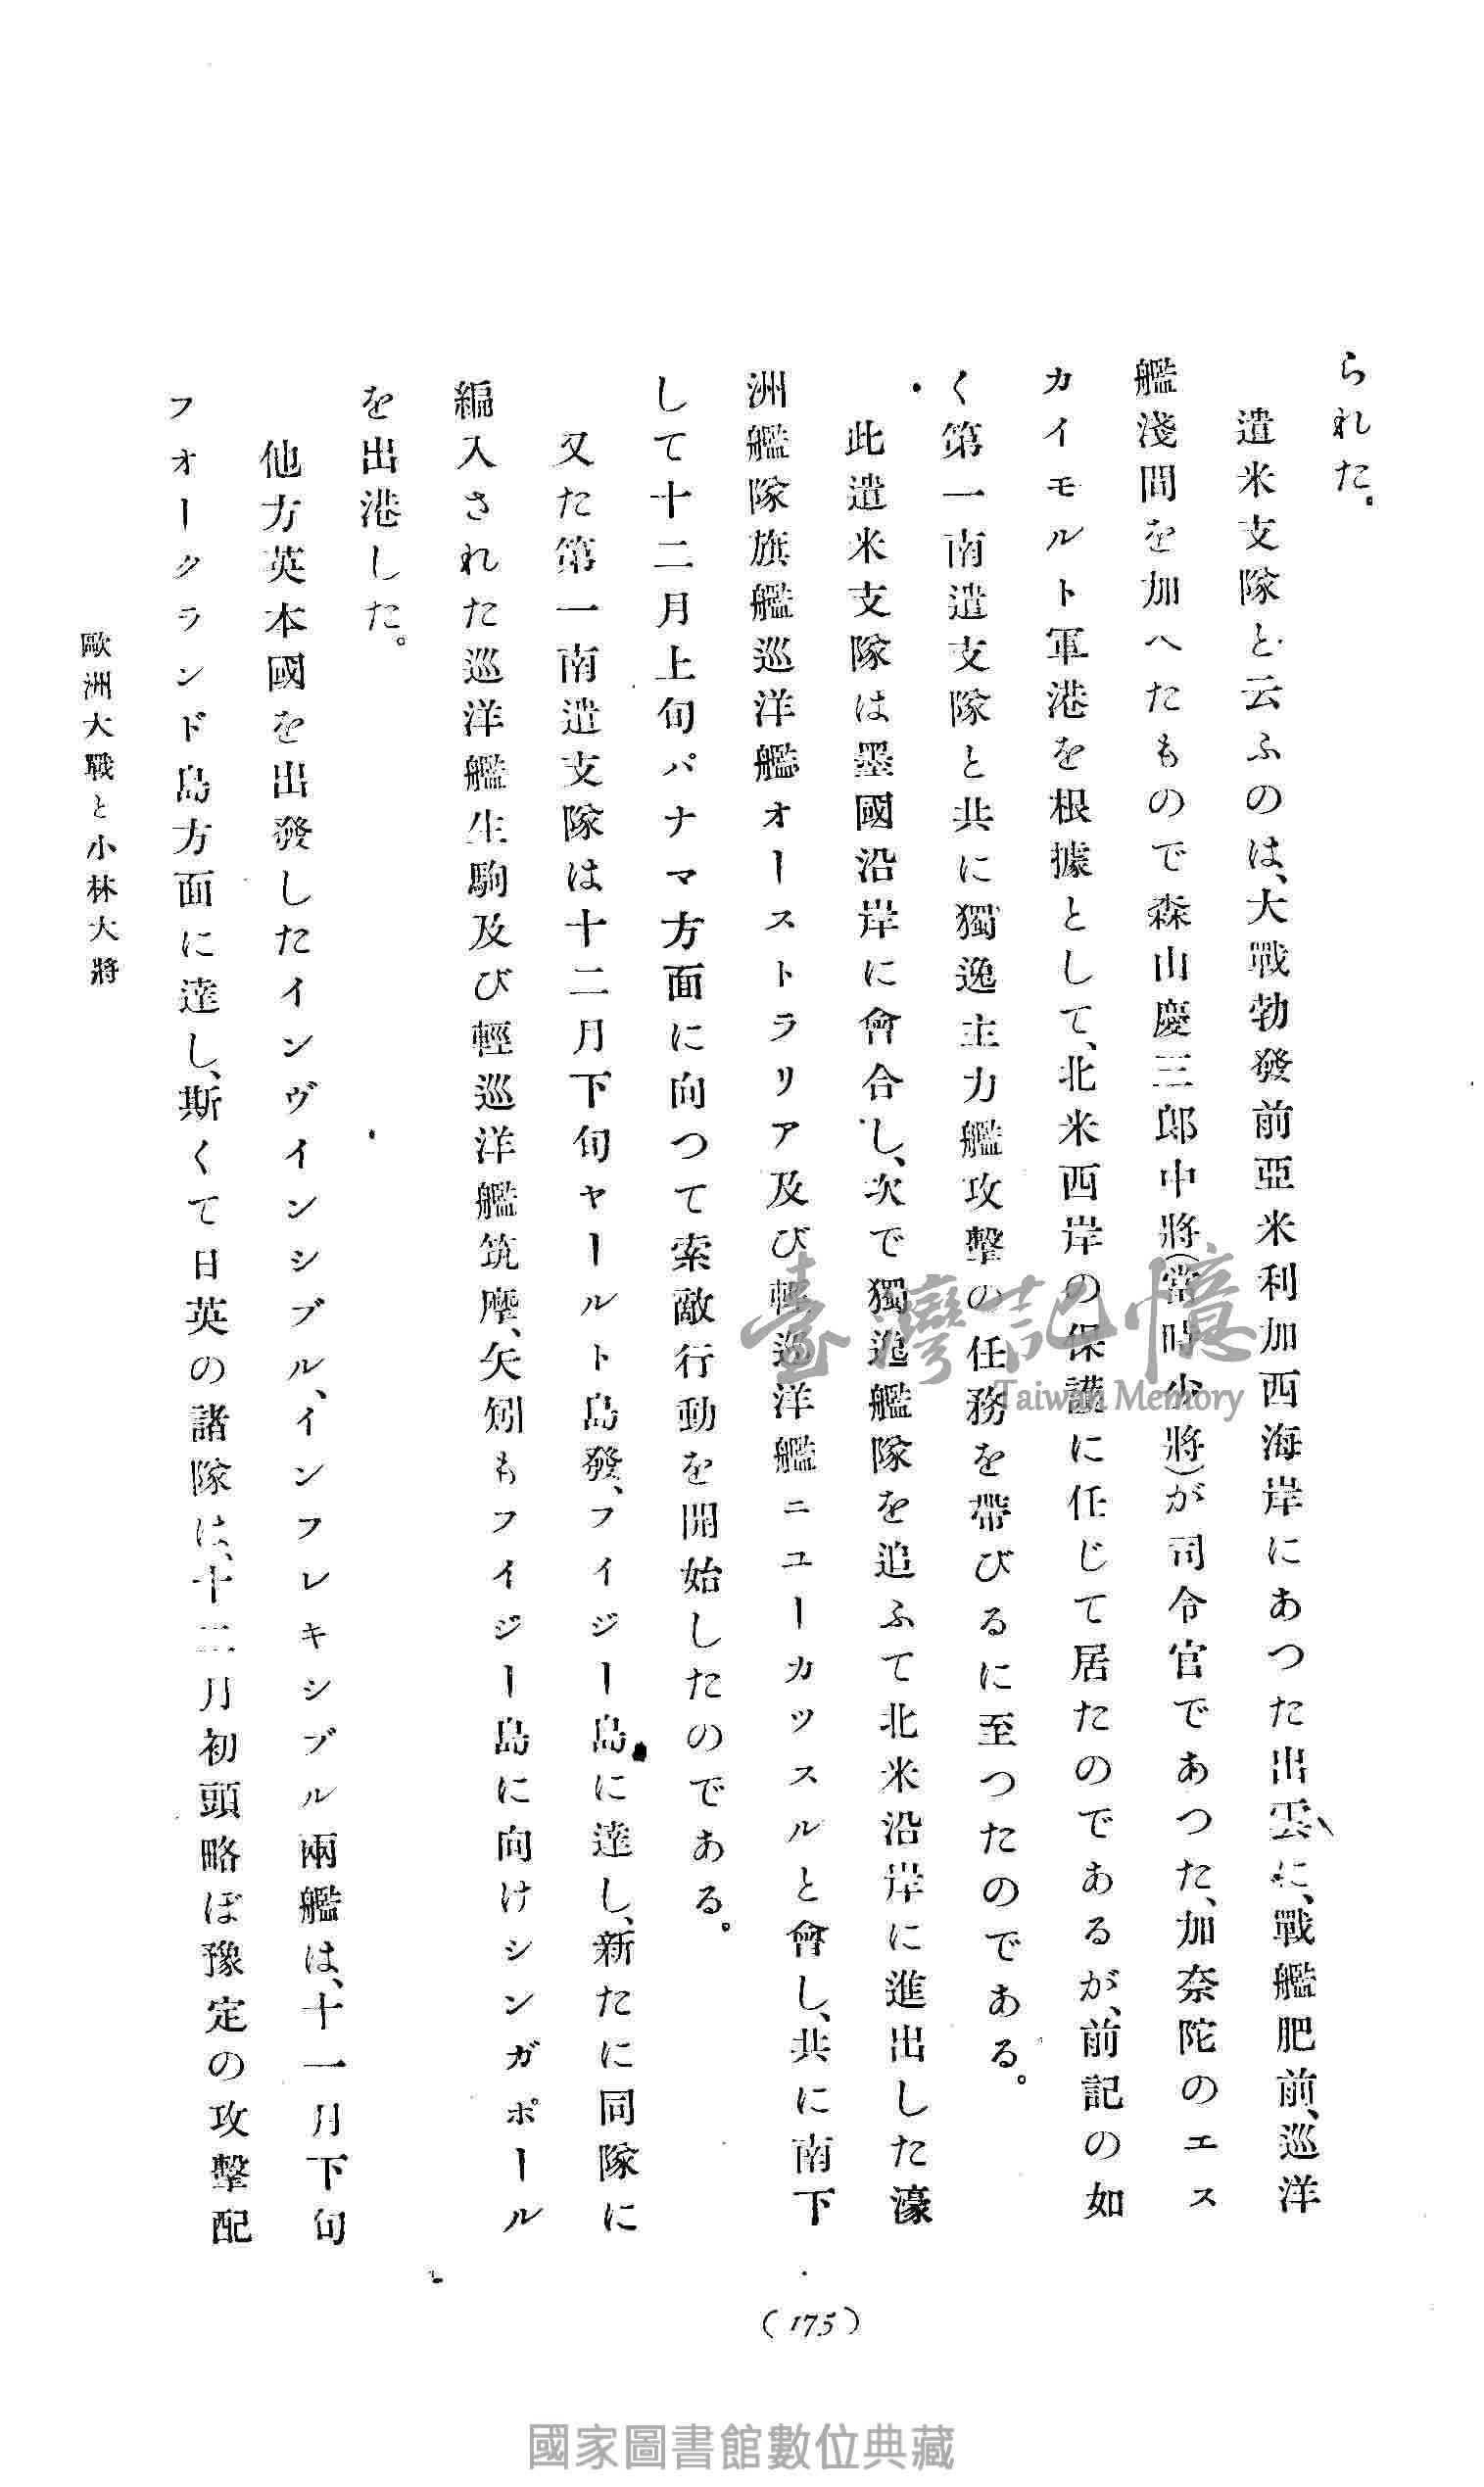 られた。
遣米支隊と云ふのは、大戰勃發前亞米利加西海岸にあつた出雲に、戰艦肥前、巡洋
艦淺間を加へたもので森山慶三郎中將(當時少將)が司令官であつた、加奈陀のエス
カイモルト軍港を根據として、北米西岸の保護に任じて居たのであるが、前記の如
く第一南遣支隊と共に獨逸主力艦攻擊の任務を帶びるに至つたのである。
此遣米支隊は墨國沿岸に會合し、次で獨逸艦隊を追ふて北米沿岸に進出した濠
洲艦隊旗艦巡洋艦オーストラリア及び輕巡洋艦ニユーカツスルと會し、共に南下
して十二月上旬パナマ方面に向つて索敵行動を開始したのである。
又た第一南遣支隊は十二月下旬ヤールト島發、フイジー島に達し、新たに同隊に
編入された巡洋艦生駒及び輕巡洋艦筑摩、矢矧もフイジー島に向けシンガポール
を出港した。
他方英本國を出發したインヴインシブル、インフレキシブル兩艦は、十一月下旬
フォークランド島方面に達し、斯くて日英の諸隊は、十二月初頭略ぼ豫定の攻擊配
歐洲大戰と小林大將
(175)
臺灣記憶
Taiwan Memory
國家圖書館數位典藏